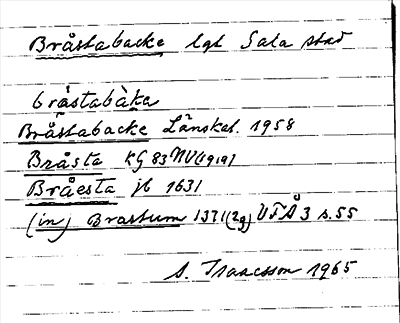 Bråstabacke lgt Sala stad
bråstabàka
Bråstabacke Länskat. 1958
Bråsta KG 83 NV (1919)
Bråesta jb 1631
(in) Brastum 1371 (2g) UFÅ 3 s. 55
S. Isaacsson 1965